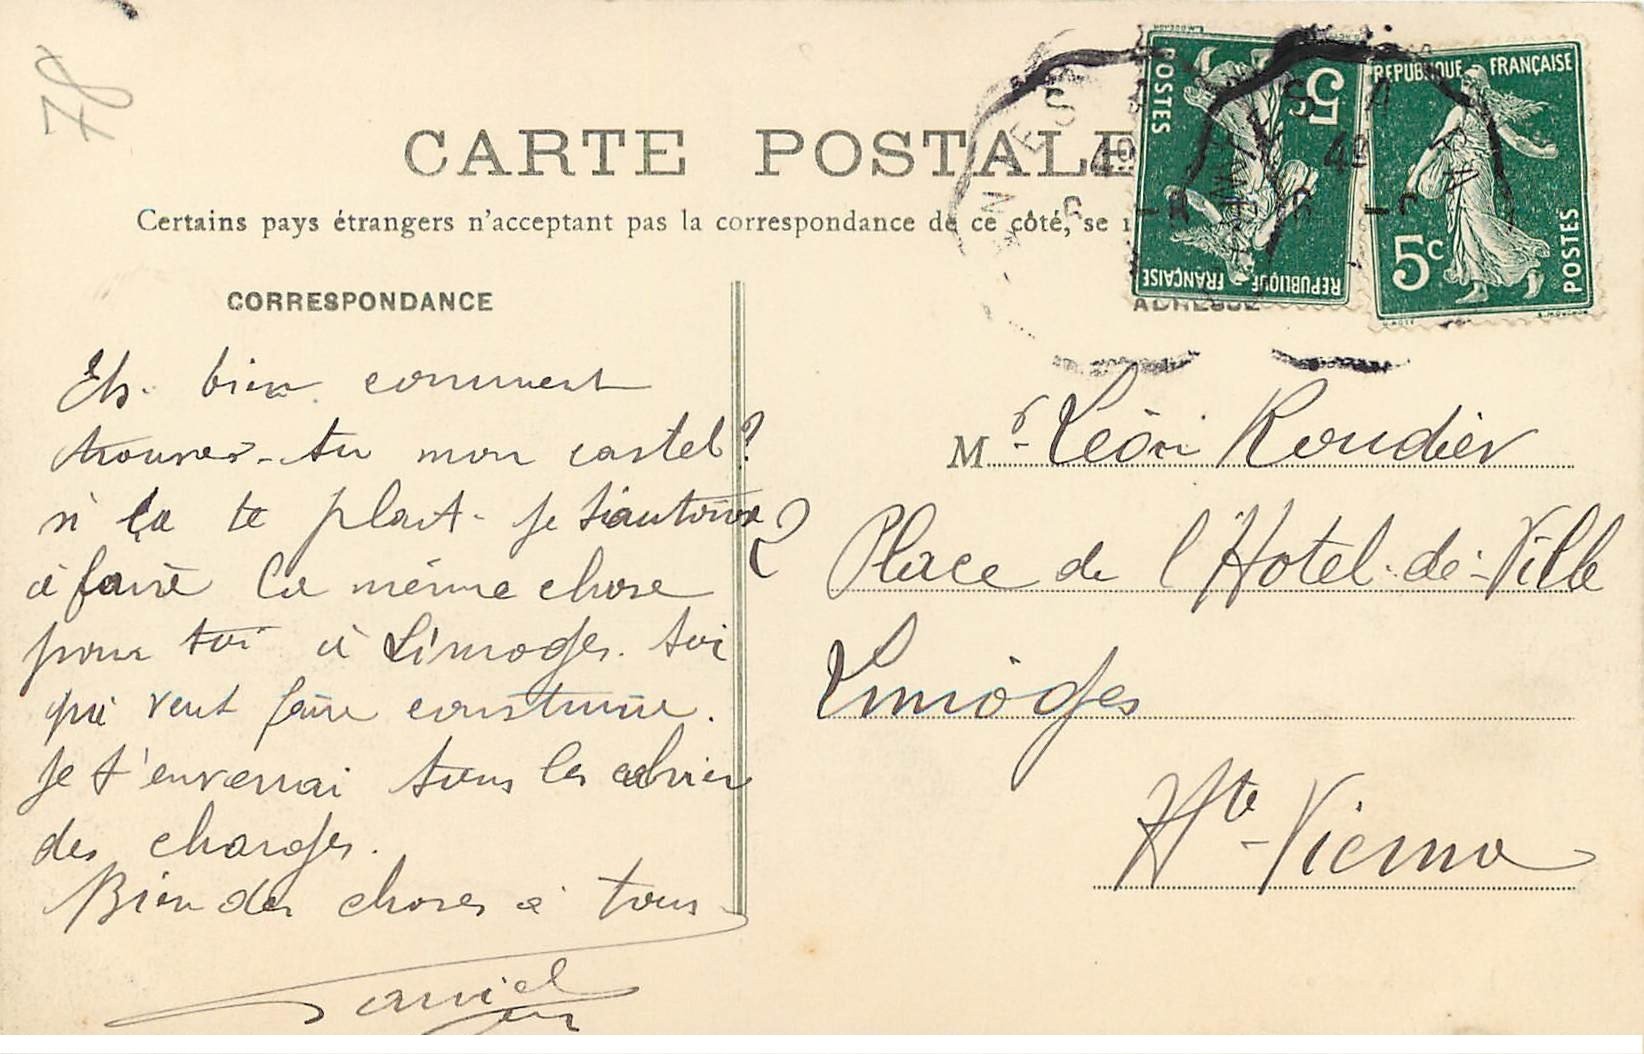 78
CARTE POSTALE
Certains pays étrangers n'acceptant pas la correspondance de ce côté, se
CORRESPONDANCE
Eh. bien comment
trouves-tu mon castel?
si ça te plait. je t'autorise
à faire la même chose
pour toi à Limoges. toi
qui veut faire construire.
Je t'enverrai tous les cahier
des charges.
Bien des choses à tous
Daniel
POSTES
5c
REPUBLIQUE FRANÇAISE
REPUBLIQUE FRANÇAISE
5c
POSTES
ADRESSE
Mr. Léon Roudier
Place de l'Hotel-de-Ville
Limoges
Hte-Vienne